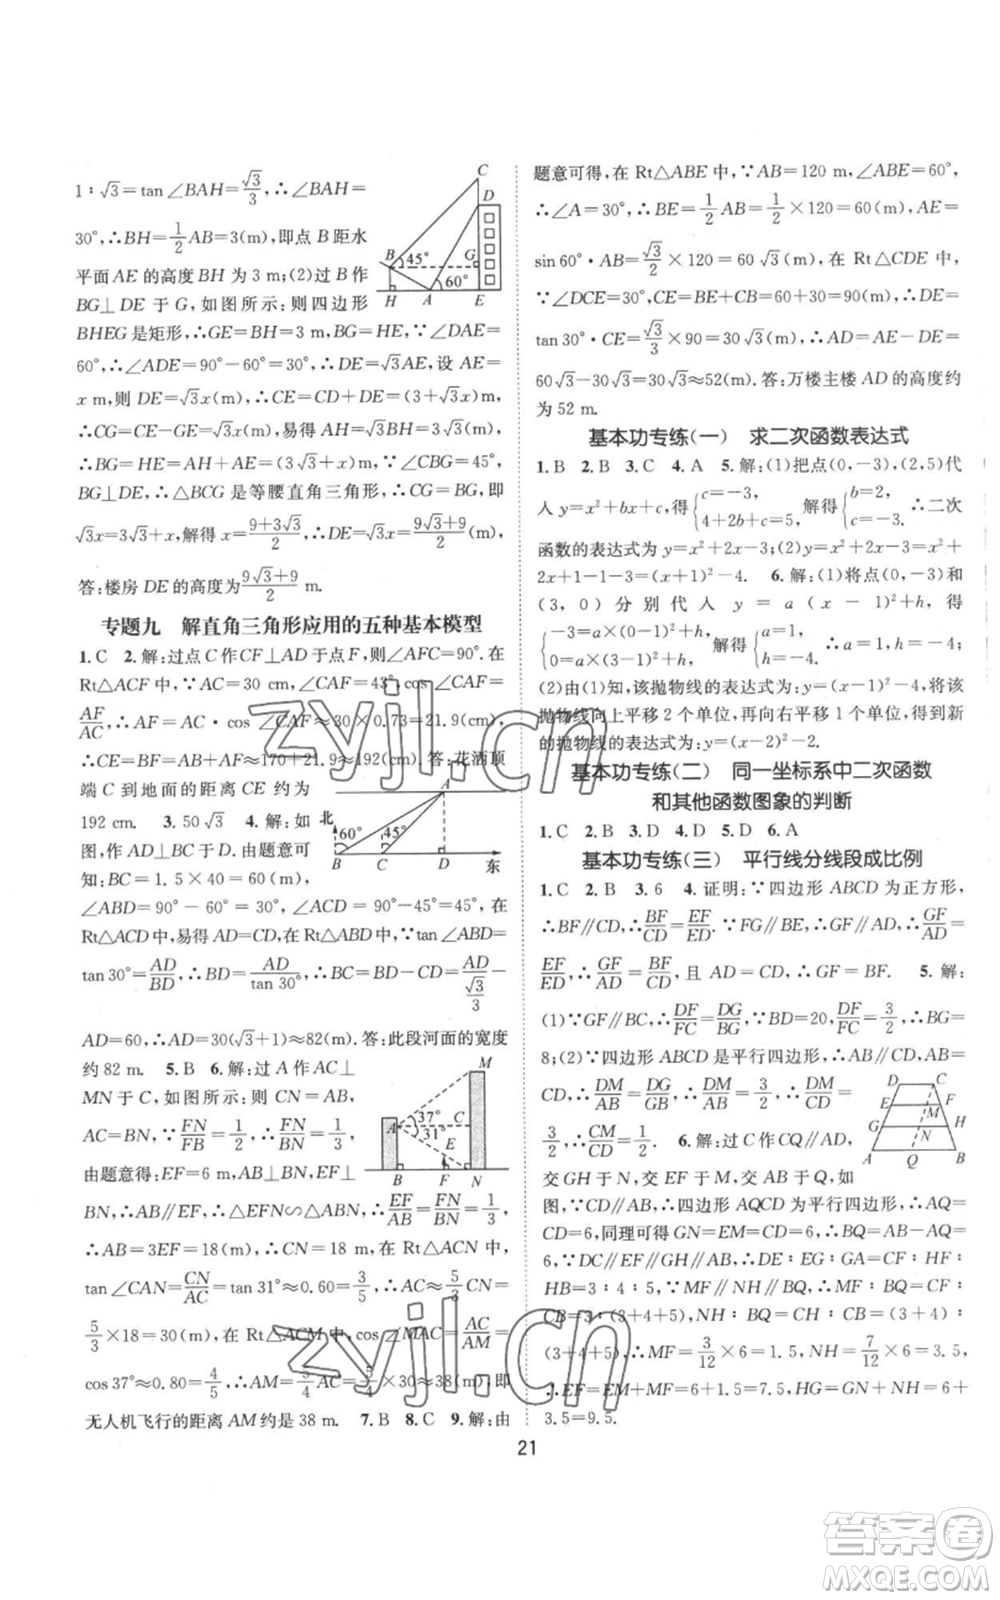 1∶√3=tan∠BAH=√3/3,∴∠BAH=
30°,∴BH=1/2AB=3(m),即点 B 距水
平面 AE 的高度 BH 为 3 m;(2)过 B 作
BG⊥DE 于 G,如图所示:则四边形
BHEG 是矩形,∴GE=BH=3 m,BG=HE,∵∠DAE=
60°,∴∠ADE=90°-60°=30°,∴DE=√3AE,设 AE=
x m,则 DE=√3x(m),∴CE=CD+DE=(3+√3x)m,
∴CG=CE-GE=√3x(m),易得 AH=√3BH=3√3 m,
∴BG=HE=AH+AE=(3√3+x)m,∵∠CBG=45°,
BG⊥DE,∴△BCG 是等腰直角三角形,∴CG=BG,即
√3x=3√3+x,解得 x=(9+3√3)/2,∴DE=√3x=(9√3+9)/2(m).
答:楼房 DE 的高度为(9√3+9)/2 m.
专题九 解直角三角形应用的五种基本模型
1.C 2.解:过点 C 作 CF⊥AD 于点 F,则∠AFC=90°.在
Rt△ACF 中,∵AC=30 cm,∠CAF=43°,cos∠CAF=
AF/AC,∴AF=AC·cos∠CAF≈30×0.73=21.9(cm),
∴CE=BF=AB+AF≈170+21.9≈192(cm).答:花洒顶
端 C 到地面的距离 CE 约为
192 cm. 3.50√3 4.解:如
图,作 AD⊥BC 于 D.由题意可
知:BC=1.5×40=60(m),
∠ABD=90°-60°=30°,∠ACD=90°-45°=45°,在
Rt△ACD 中,易得 AD=CD,在 Rt△ABD 中,∵tan∠ABD=
tan30°=AD/BD,∴BD=AD/tan30°,∴BC=BD-CD=AD/(√3/3)-
AD=60,∴AD=30(√3+1)≈82(m).答:此段河面的宽度
约为 82 m. 5.B 6.解:过 A 作 AC⊥
MN 于 C,如图,则 CN=AB,
AC=BN,∵FN/FB=1/2,∴FN/BN=1/3,
由题意得:EF=6 m,AB⊥BN,EF⊥
BN,∴AB∥EF,∴△EFN∽△ABN,∴EF/AB=FN/BN=1/3,
∴AB=3EF=18(m),∴CN=18 m,在 Rt△ACN 中,
tan∠CAN=CN/AC=tan31°≈0.60=3/5,∴AC≈5/3CN=
5/3×18=30(m),在 Rt△ACM 中,cos∠MAC=AC/AM=
cos37°≈0.80=4/5,∴AM=5/4AC=5/4×30≈38(m),即
无人机飞行的距离 AM 约是 38 m. 7.B 8.C 9.解:由
题意可得,在 Rt△ABE 中,∵AB=120 m,∠ABE=60°,
∴∠A=30°,∴BE=1/2AB=1/2×120=60(m),AE=
sin60°·AB=√3/2×120=60√3(m),在 Rt△CDE 中,
∵∠DCE=30°,CE=BC+BE=60+30=90(m),∴DE=
tan30°·CE=√3/3×90=30√3(m),∴AD=AE-DE=
60√3-30√3=30√3≈52(m).答:万楼主楼 AD 的高度约
为 52 m.
基本功专练(一) 求二次函数表达式
1.B 2.B 3.C 4.A 5.解:(1)把点(0,-3),(2,5)代
入 y=x²+bx+c,得{c=-3, 4+2b+c=5, 解得{b=2, c=-3, ∴二次
函数的表达式为 y=x²+2x-3;(2)∵y=x²+2x-3=
(x+1)²-4,∴顶点坐标为(-1,-4). 6.解:(1)将点(0,-3)和
(3,0)分别代入 y=a(x-1)²+h,得
{-3=a(0-1)²+h, 0=a(3-1)²+h, 解得{a=1, h=-4, ∴a=1,h=-4;
(2)由(1)知,该抛物线的表达式为:y=(x-1)²-4,将该
抛物线向上平移 2 个单位,再向右平移 1 个单位,得到新
的抛物线的表达式为:y=(x-2)²-2.
基本功专练(二) 同一坐标系中二次函数
和其他函数图象的判断
1.C 2.B 3.D 4.D 5.D 6.A
基本功专练(三) 平行线分线段成比例
1.C 2.B 3.6 4.证明:∵四边形 ABCD 为正方形,
∴BF∥CD,∴BF/CD=EF/ED.∵FG∥BE,∴FG∥AD,∴GF/AD=
EF/ED,∴GF/AD=BF/CD,且 AD=CD,∴GF=BF. 5.解:
(1)∵GF∥BC,∴DF/FC=DG/BG,∵BD=20,DF/FC=3/2,∴BG=
8;(2)∵四边形 ABCD 是平行四边形,∴AB∥
CD,∴DM/AB=DG/GB,∴DM/AB=DM/CD=
3/2,∴CM/CD=1/3. 6.解:过 C 作 CQ∥AD,
交 GH 于 N,交 EF 于 M,交 AB 于 Q,如
图,∵CD∥AB,∴四边形 AQCD 为平行四边形,∴AQ=
CD=6,同理可得 GN=EM=CD=6,∴BQ=AB-AQ=
6,∵DC∥EF∥GH∥AB,∴DE∶EG∶GA=CF∶HF∶
HB=3∶4∶5,∵MF∥NH∥BQ,∴MF∶BQ=CF∶
CB=3∶(3+4+5),NH∶BQ=CH∶CB=(3+4)∶
(3+4+5),∴MF=3/12×6=1.5,NH=7/12×6=3.5,
∴EF=EM+MF=6+1.5=7.5,HG=GN+NH=6+
3.5=9.5.
21
C
D
B
45°
G
60°
H
A
E
北
60°
45°
A
B
C
D
东
M
A
37°
C
31°
E
B
F
N
D
C
E
M
F
G
N
H
A
Q
B
zyjl.cn
zyjl.cn
答案圈
MXQE.COM